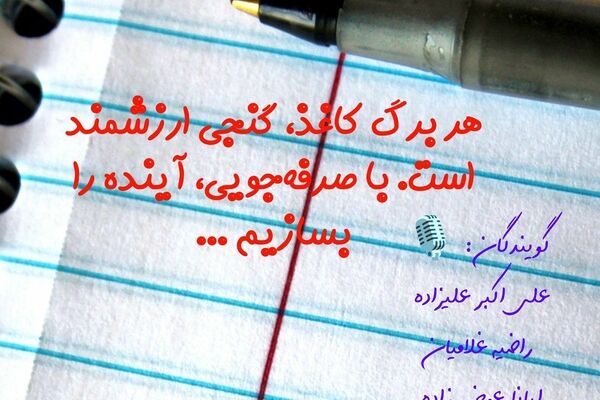 هر برگ کاغذ، گنجی ارزشمند
است. با صرفه‌جویی، آینده را
بسازیم ...
گویندگان:
علی اکبر علیزاده
راضیه غلامیان